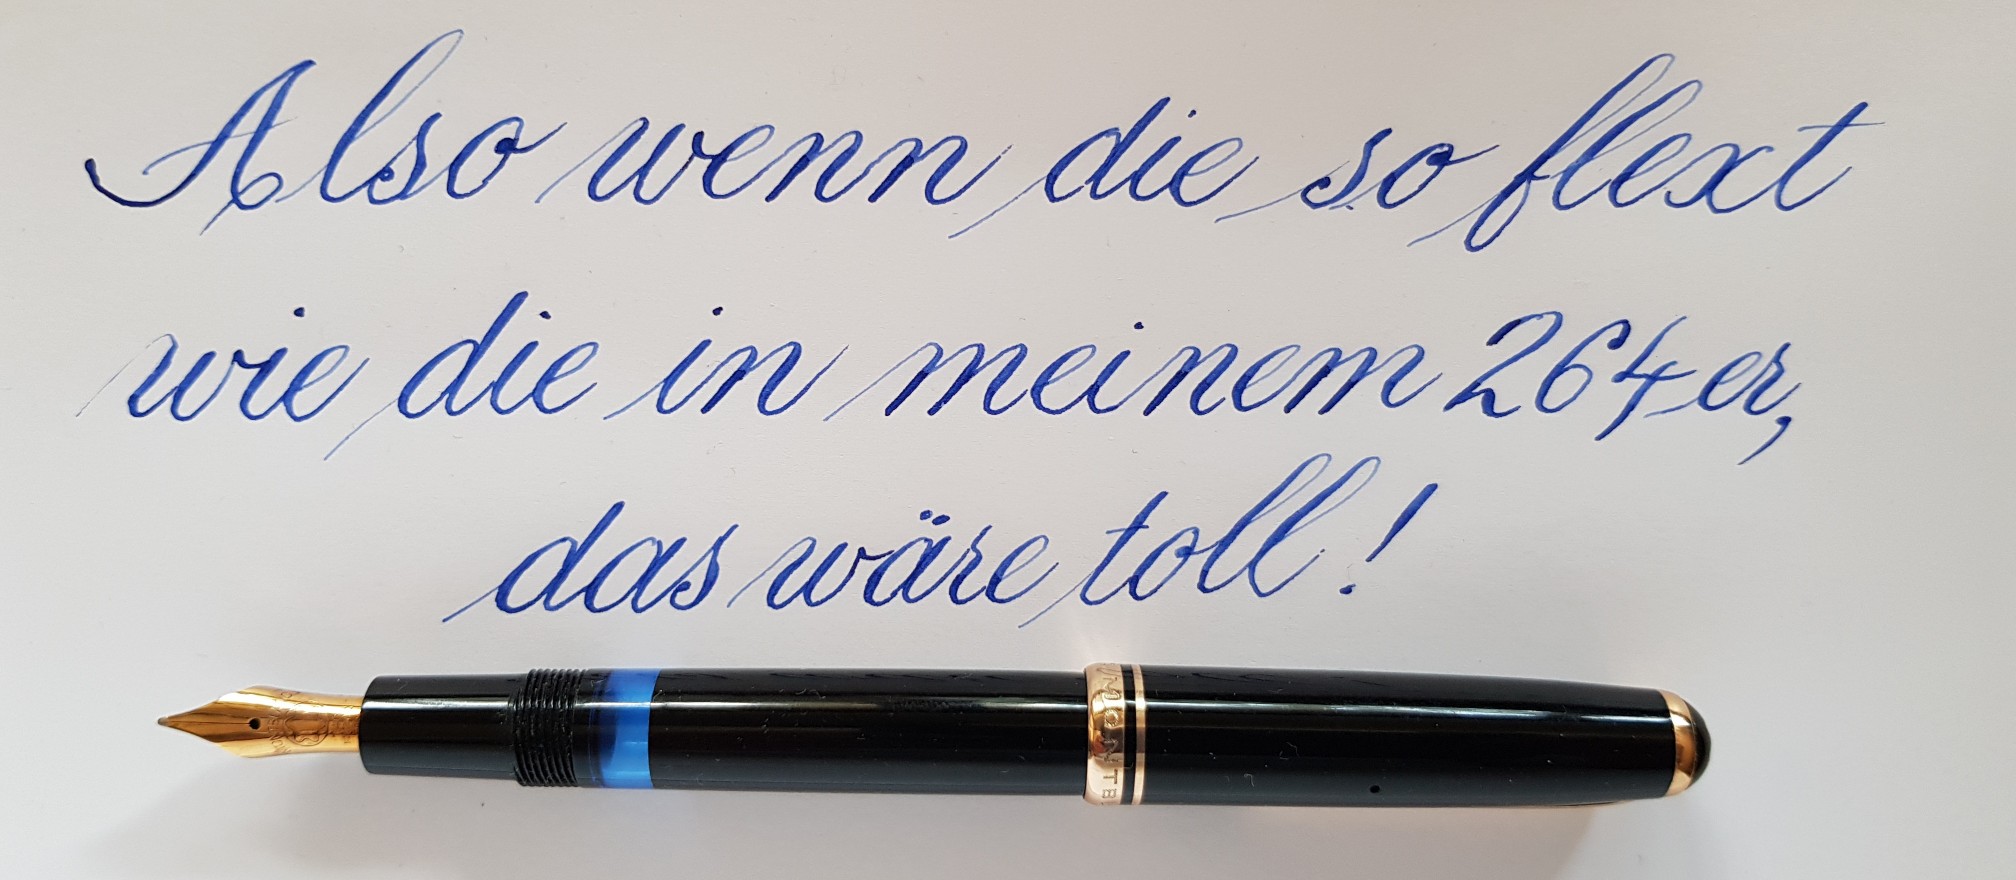 Also wenn die so flext
wie die in meinem 264er,
das wäre toll!
MONTB